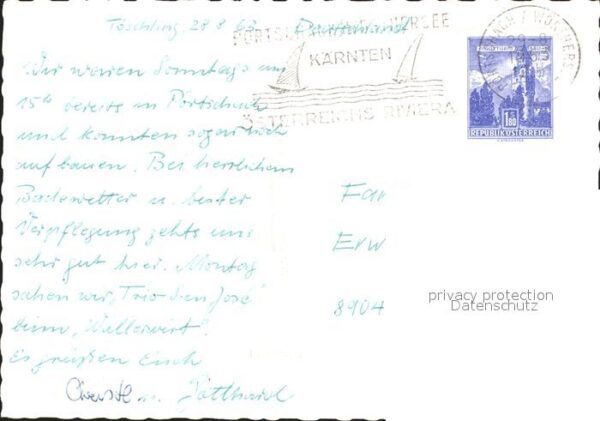 Töschling, 28.8.63
Deutschland
PÖRTSCHACH AM WÖRTHERSEE
KÄRNTEN
ÖSTERREICHS RIVIERA
PÖRTSCHACH / WÖRTHERSEE
1.80
REPUBLIK ÖSTERREICH
Wir waren Sonntags um
15h bereits in Pörtschach
und konnten sogar noch
aufbauen. Bei herrlichem
Badewetter u. bester
Verpflegung gehts uns
sehr gut hier. Montag
sahen wir „Trio San José"
beim „Wallerwirt".
Es grüßen Euch
u. Gotthard
Fam
Erw
8904
privacy protection
Datenschutz